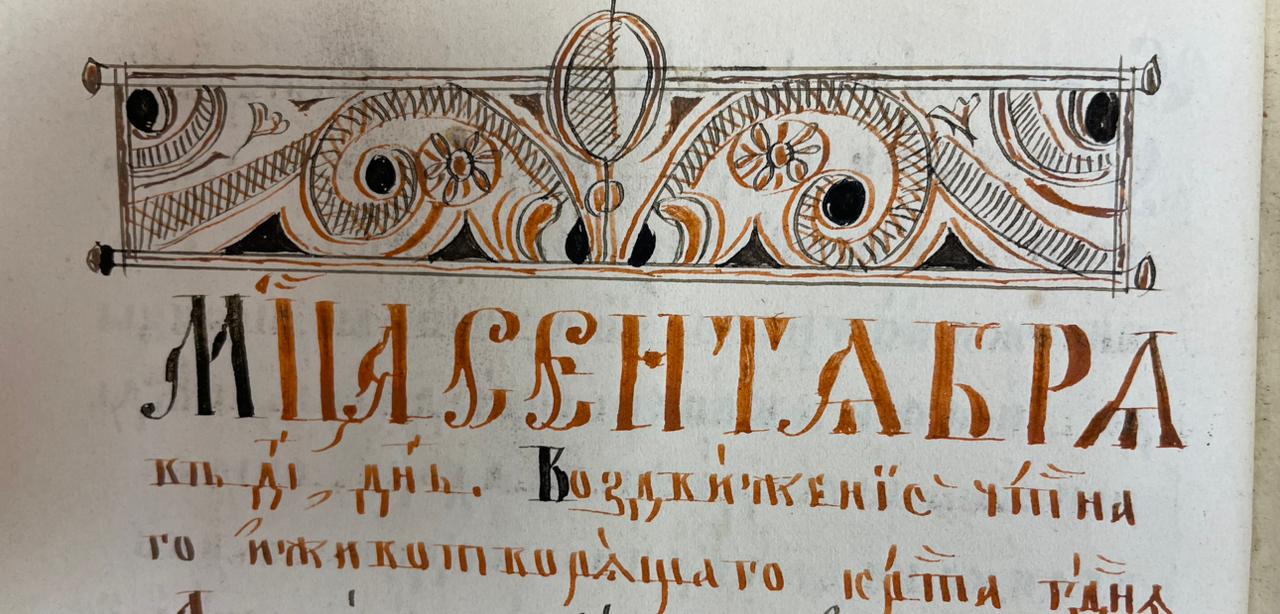 МЦ҃А СЕНТѦБРѦ
въ д҃і, дн҃ь. Воздви́женїе чⷭ҇тна
го и҆животворѧ́щаго крⷭ҇та гдⷭ҇нѧ